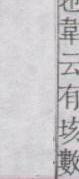 韋云有垓數